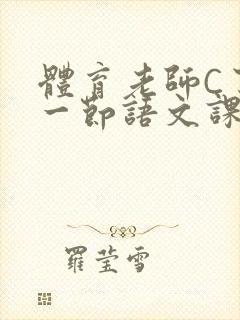 體育老師C
一節語文課
羅莹雪